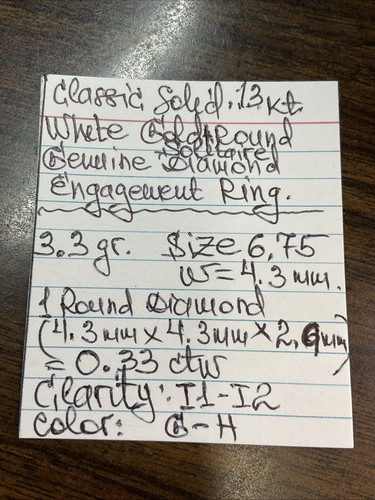 Classic Solid 13 Kt
White Gold Round
Solitaire
Genuine Diamond
Engagement Ring.
3.3 gr. Size 6,75
W = 4.3 mm.
1 Round Diamond
(4.3 mm x 4.3 mm x 2,6mm)
= 0.33 ctw
Clarity: I1-I2
Color: G-H